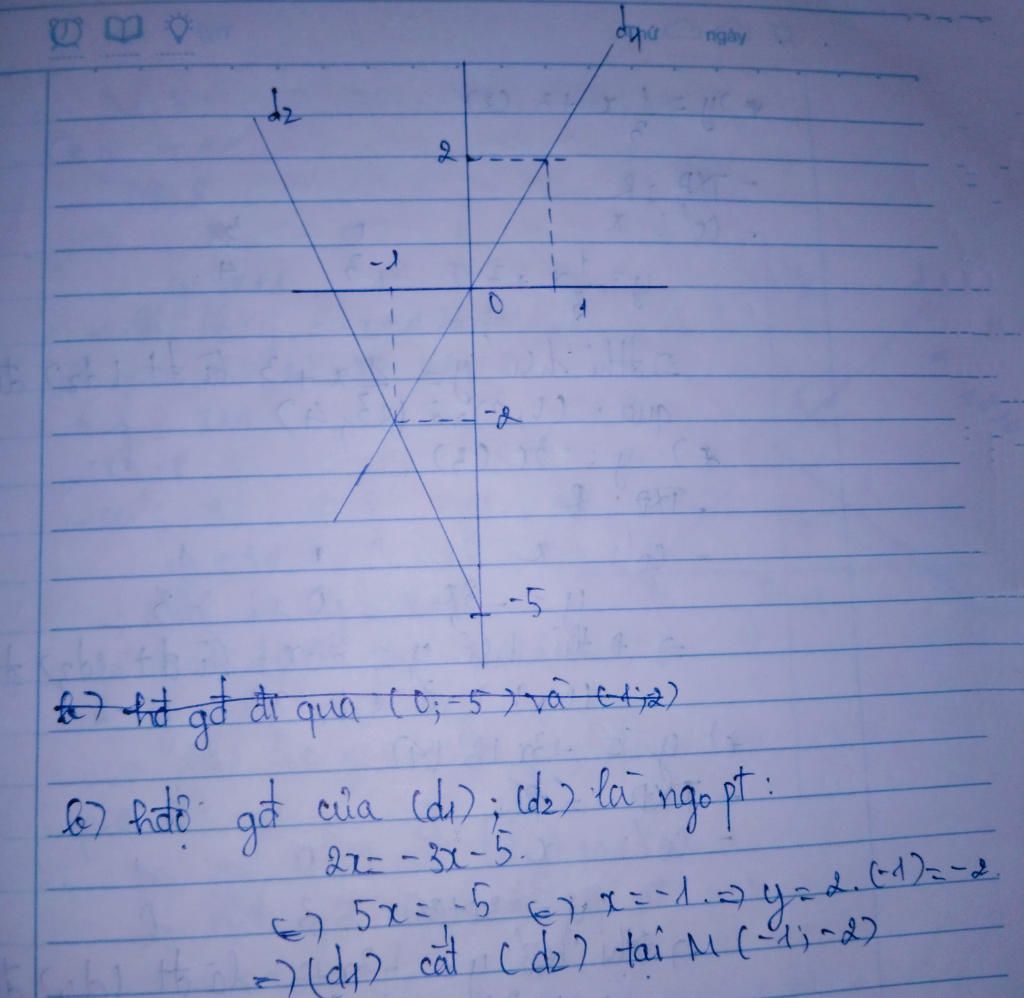 thứ ngày
d1
d2
2
-1
0
1
-2
-5
b) hđ gđ đi qua (0;-5) và (-1;2)
b) hđộ gđ của (d1); (d2) là ngo pt:
2x= -3x-5.
<=> 5x = -5 <=> x = -1. => y = 2.(-1)=-2.
=> (d1) cắt (d2) tại M (-1;-2)